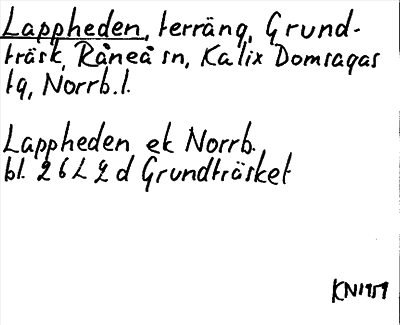 Lappheden, terräng, Grund-
träsk, Råneå sn, Kalix Domsagas
tg, Norrb.l.
Lappheden ek Norrb.
bl. 26L 2d Grundträsket
KN1959